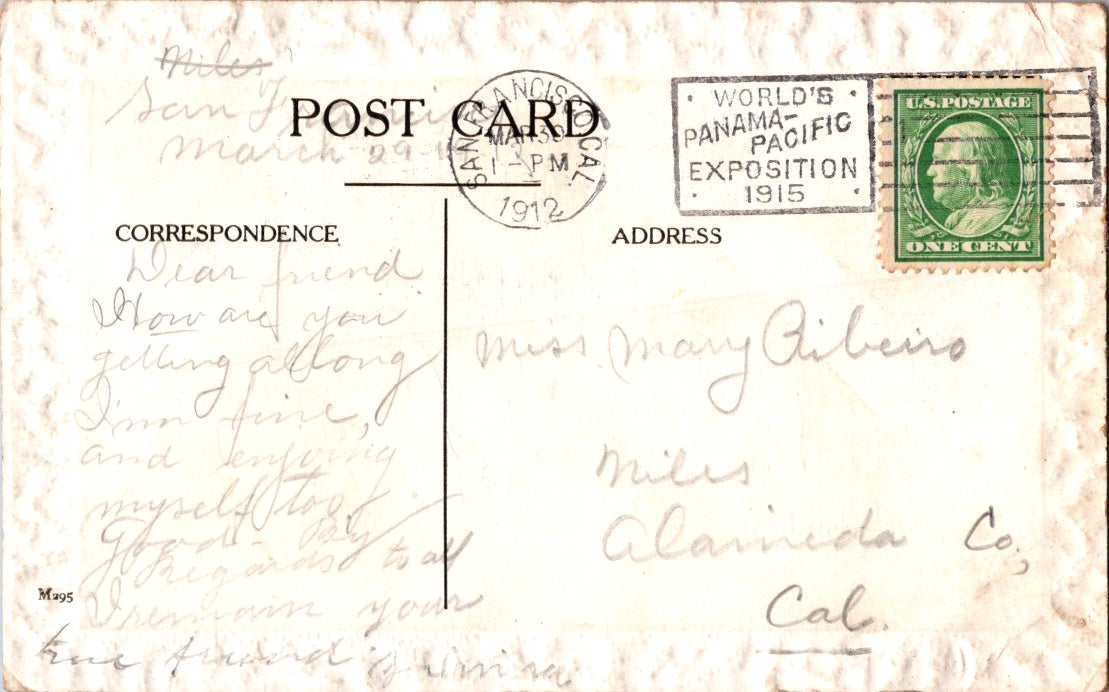 Miles
San Francisco
March 29-1
POST CARD
SAN FRANCISCO, CAL.
MAR 30
1-PM
1912
WORLD'S
PANAMA-
PACIFIC
EXPOSITION
1915
U.S. POSTAGE
ONE CENT
CORRESPONDENCE
ADDRESS
Dear friend
How are you
getting allong
I'm fine,
and enjoying
myself too,
Good-By
Regards to all
I remain your
true friend
M295
Miss Mary Ribeiro
Niles
Alameda Co,
Cal.